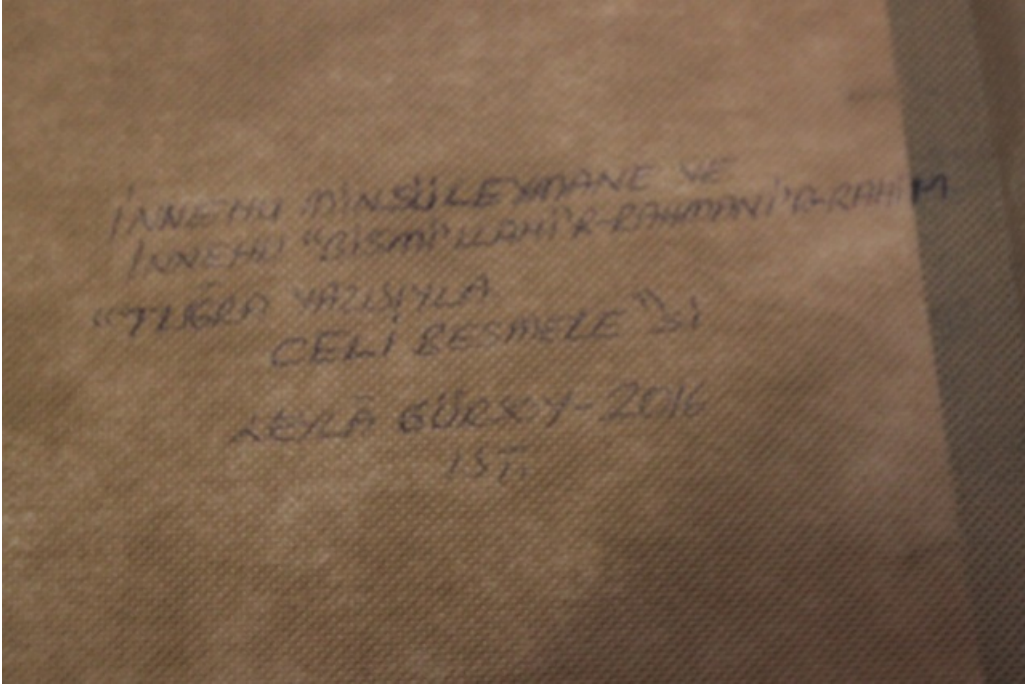 İNNEHU MİNSÜLEYMANE VE
İNNEHU "BİSMİ'LLAHİ'R-RAHMANİ'R-RAHİM
"TUĞRA YAZISIYLA
CELİ BESMELE"Sİ
LEYLÂ GÜRSOY-2016
İST.